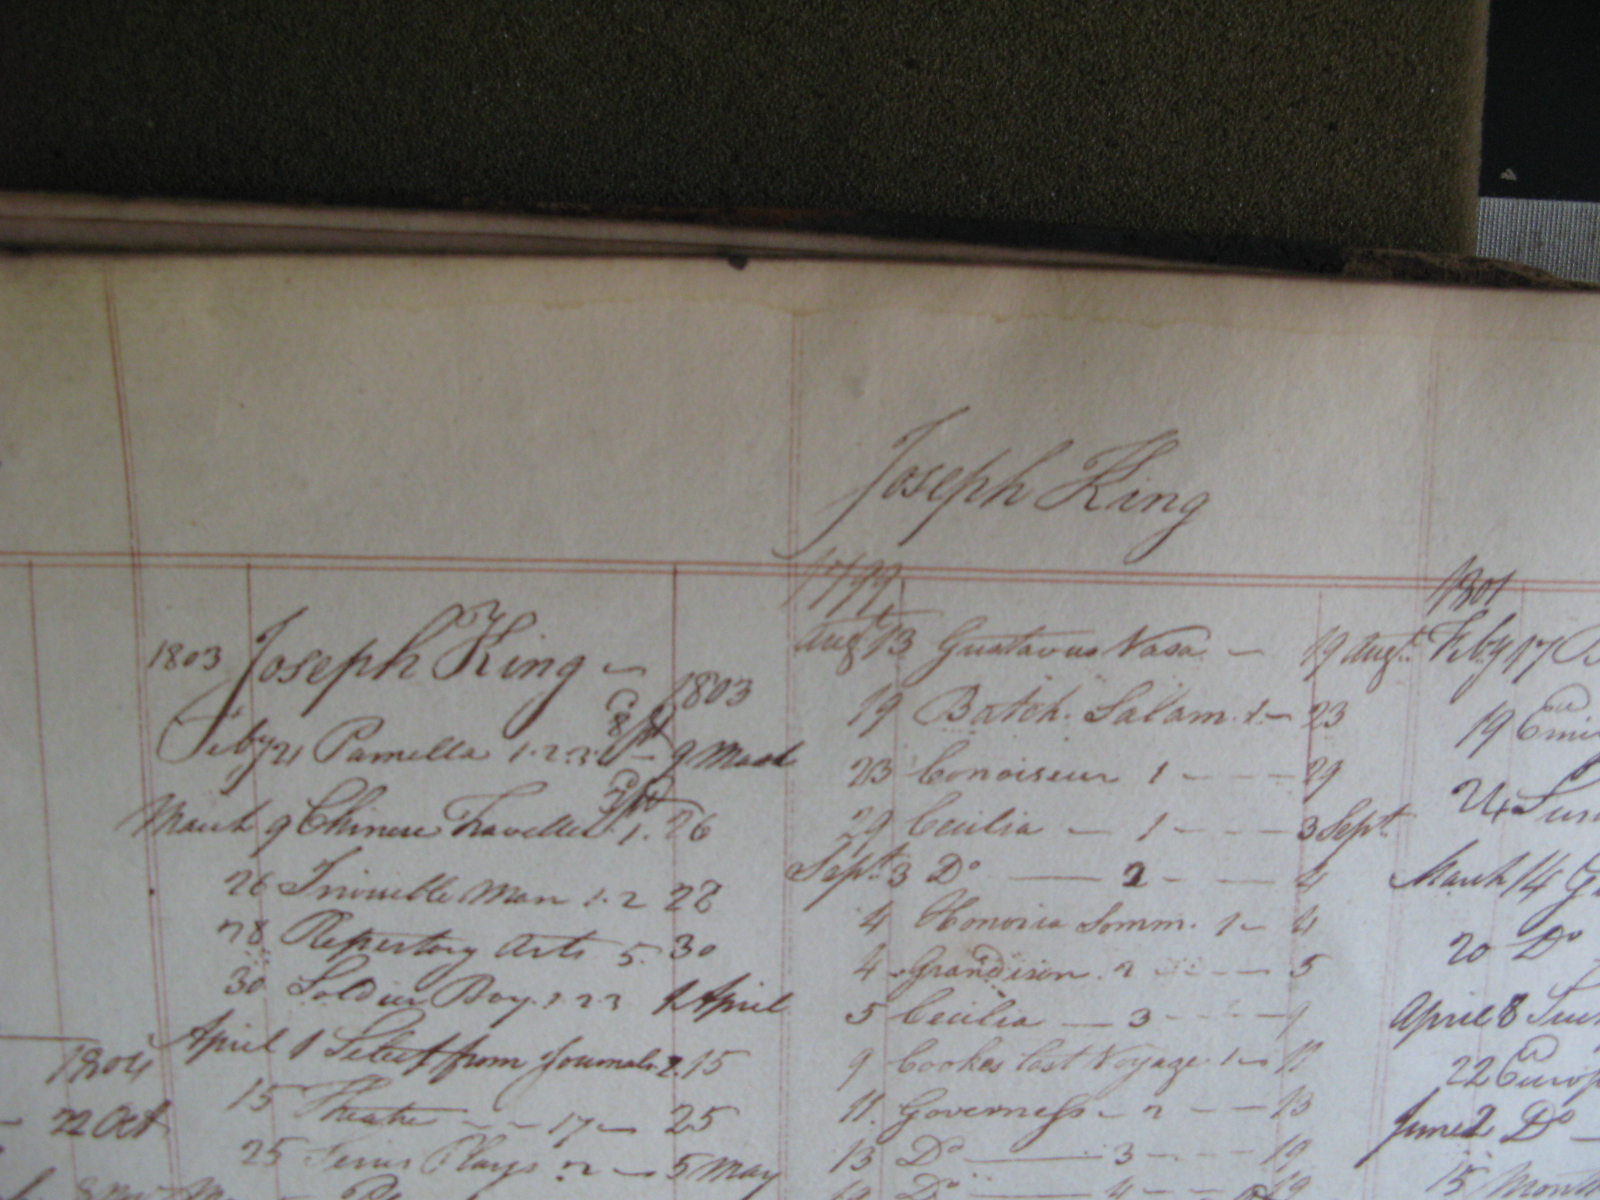 1804
22 Oct
1803 Joseph King
1803
Feby 21 Pamella 1.2.3. 9 March
March 9 Chinese Traveller 1. 26
26 Invisible Man 1.2 28
28 Repertory Arts 5. 30
30 Soldier Boy 1 2 3 1 April
April 1 Select from Journals 2 15
15 Theatre 17 — 25
25 Plays 2 — 5 May
Joseph King
1799
Augt 13 Gustavus Vasa — 19 Augt
19 Batch. Salam. 1 — 23
23 Conoiseur 1 - - - 29
29 Cecilia — 1 - - - 3 Sept
Sept. 3 Do — 2 - - - 4
4 Honoria Somm. 1 - 4
4 Grandison 2 - - - 5
5 Cecilia — 3 - - - 9
9 Cookes last Voyage 1 - 11
11 Governess - 2 - - 13
13 Do — 3 - - - 19
19 Do — 4 - - 19
1801
Feby 17
19
24
March 14
20 Do
April 8
22
June 2 Do
15